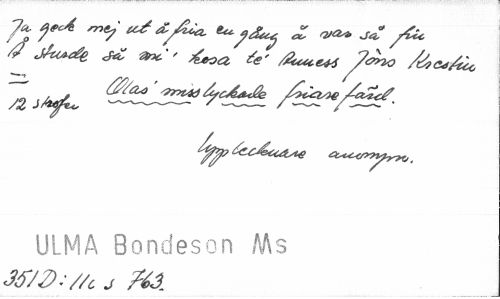 Ja geck mej ut å fria en gång å var så fin
Å sturde så mi' kosa te' Anness Jöns Kresstin
=
12 strofer Olas' misslyckade friarefärd.
Upptecknare anonym.
ULMA Bondeson Ms
351D:11c s 763.